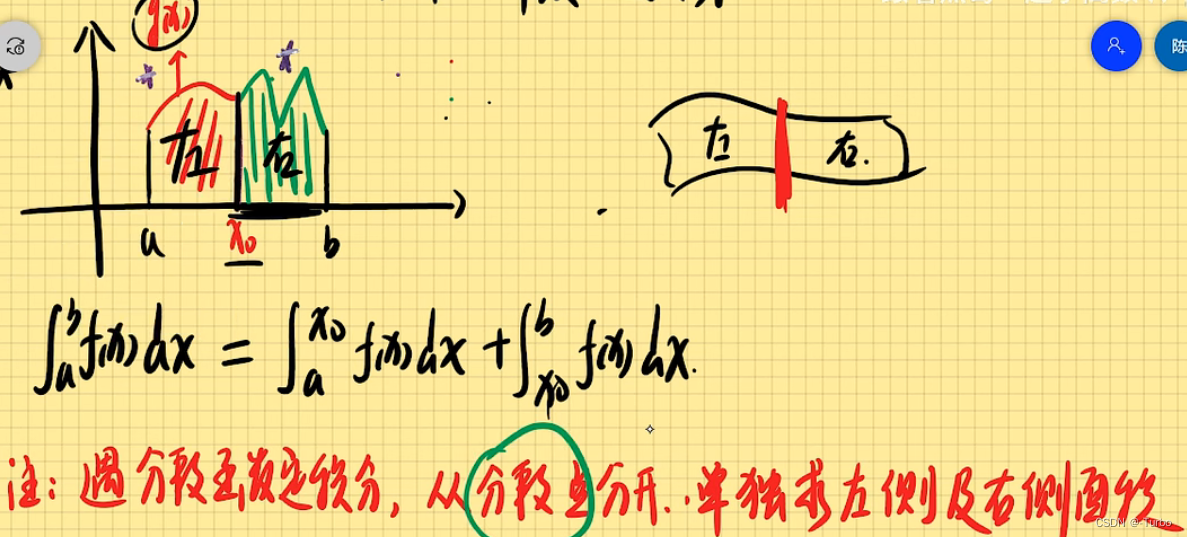 f(x)
左 右
左 右.
a x₀ b
∫ₐᵇ f(x) dx = ∫ₐ^x₀ f(x) dx + ∫_x₀^b f(x) dx.
注: 遇分段函数定积分, 从分段点分开. 单独求左侧及右侧面积
陈
CSDN @-Turbo